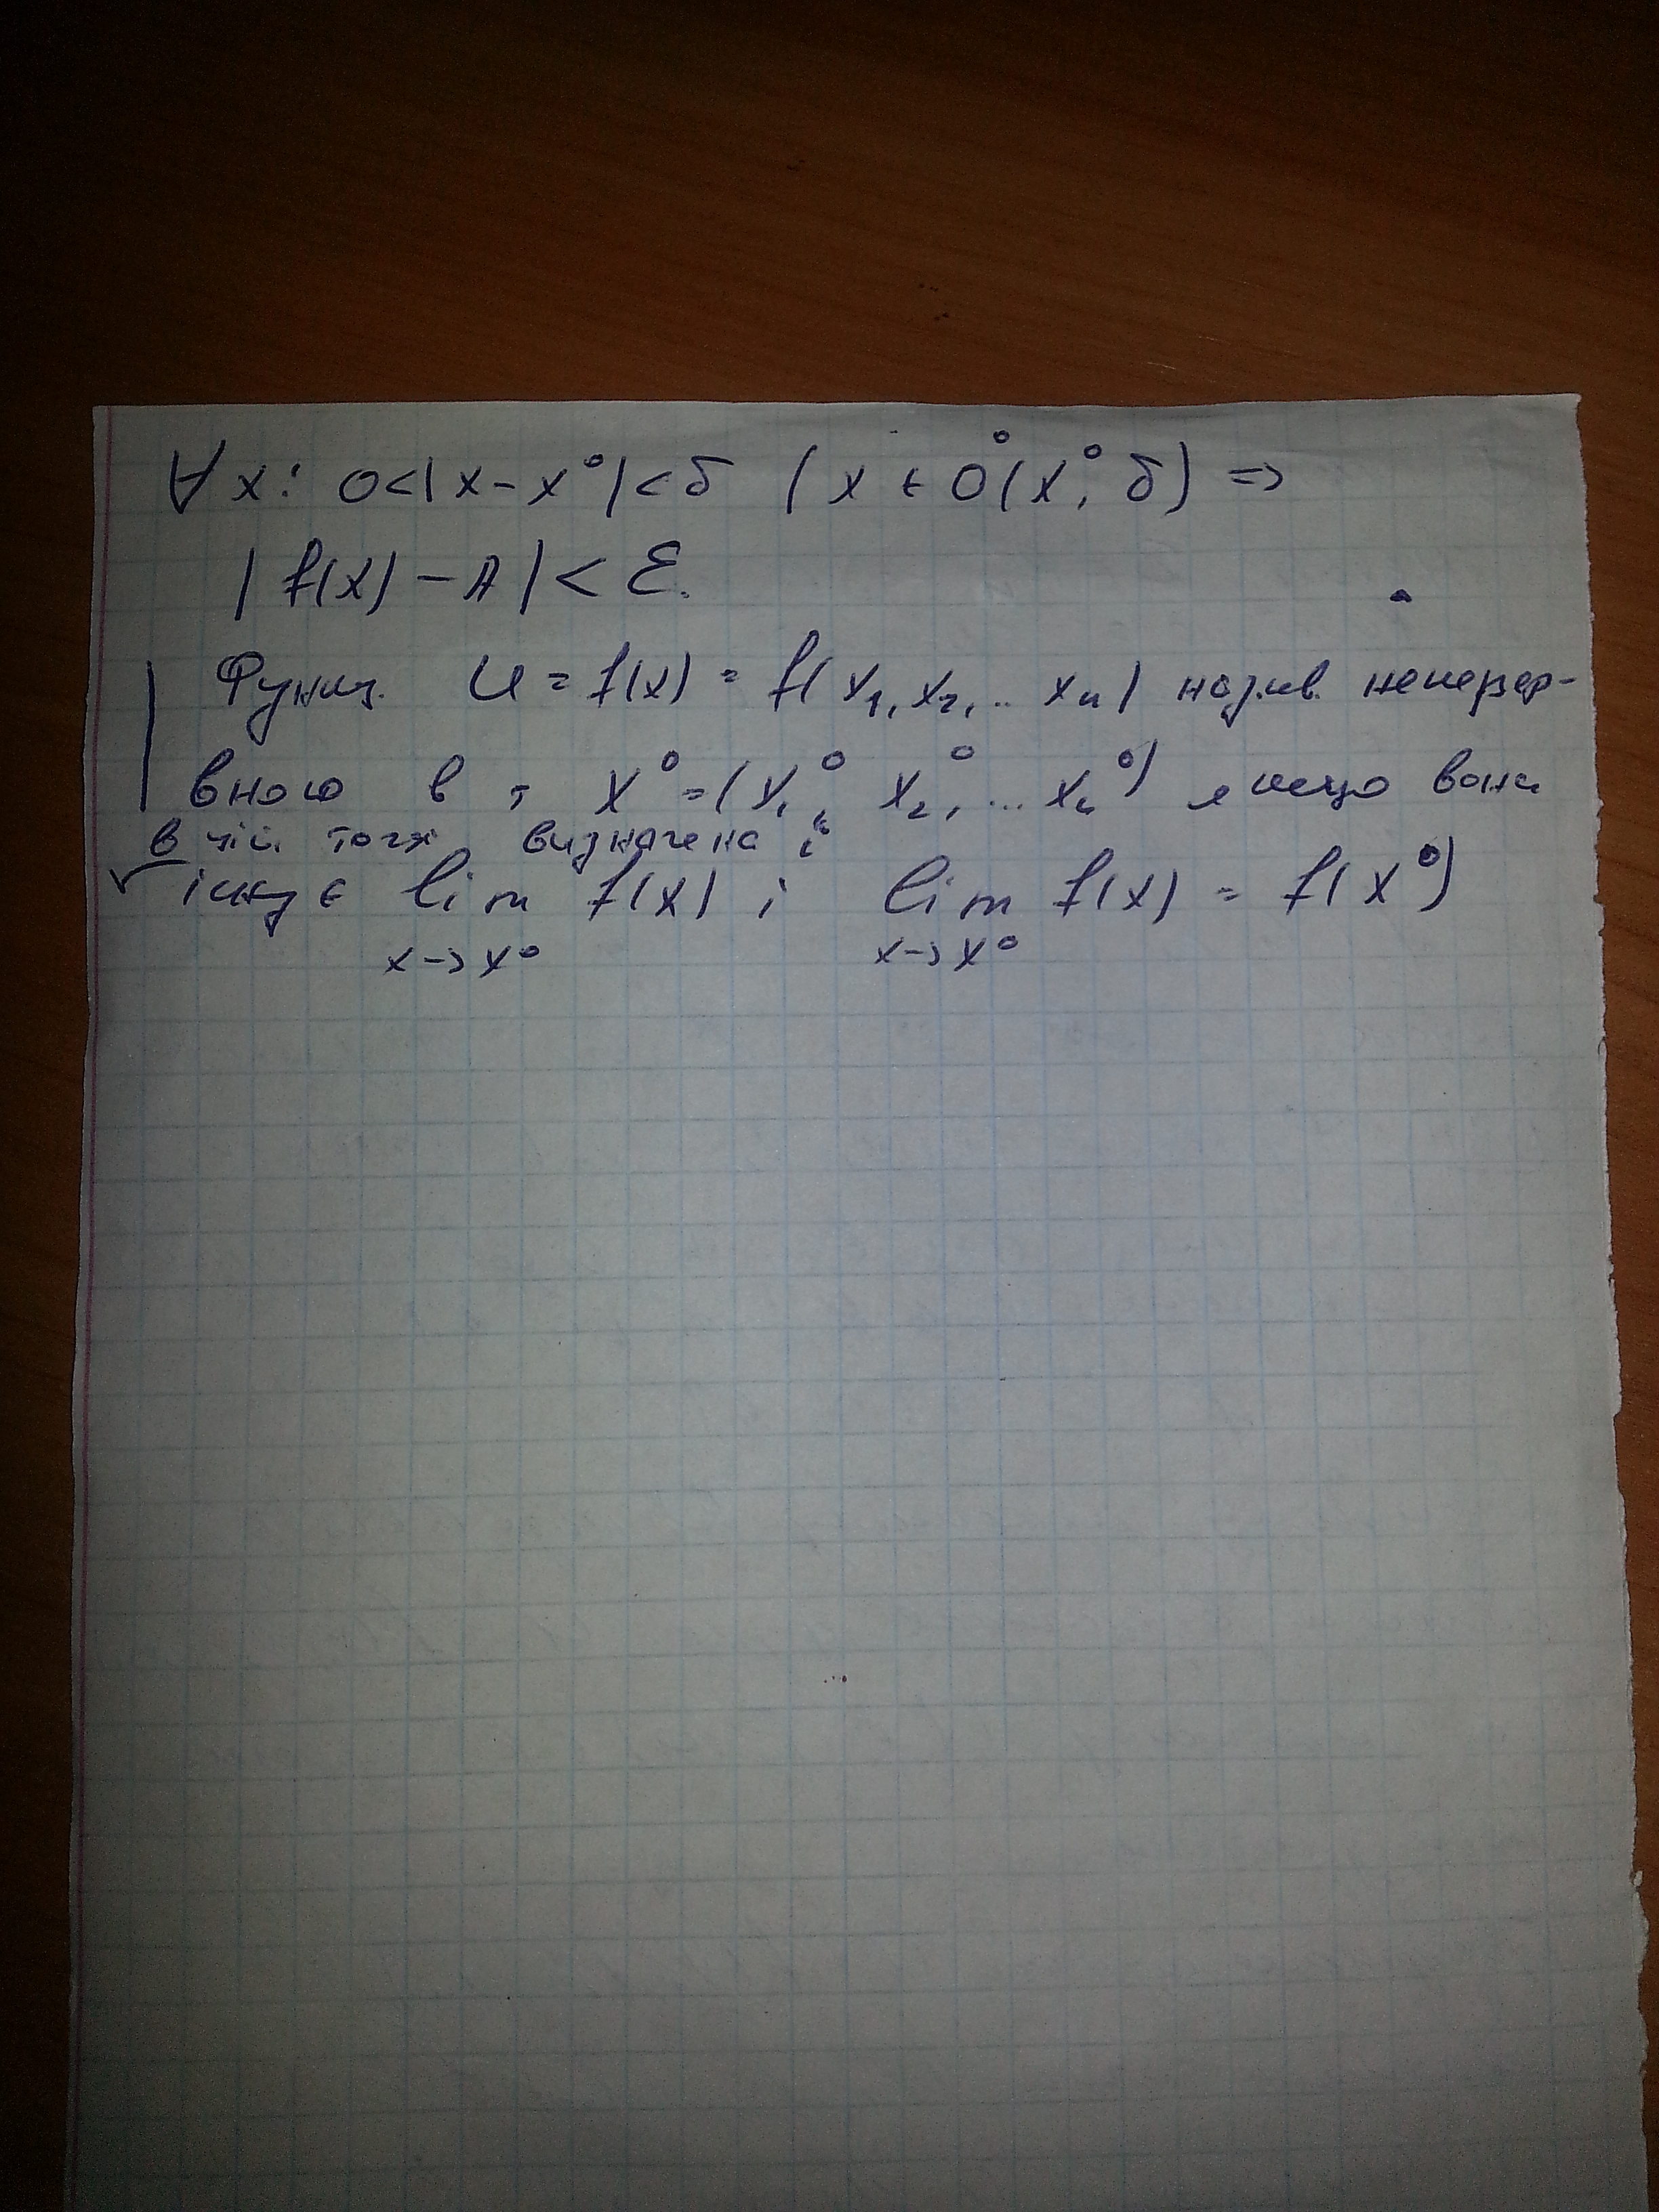 ∀x: 0<|x-x⁰|<δ (x ∈ O̊(x⁰, δ) ⇒
|f(x) - A| < ε.
Функц. U = f(x) = f(x₁, x₂, .. xₙ) назив. непрер-
вною в т x⁰ = (x₁⁰, x₂⁰, ... xₙ⁰) якщо вона
в цій точці визначена і
існує lim f(x) і lim f(x) = f(x⁰)
x→x⁰ x→x⁰